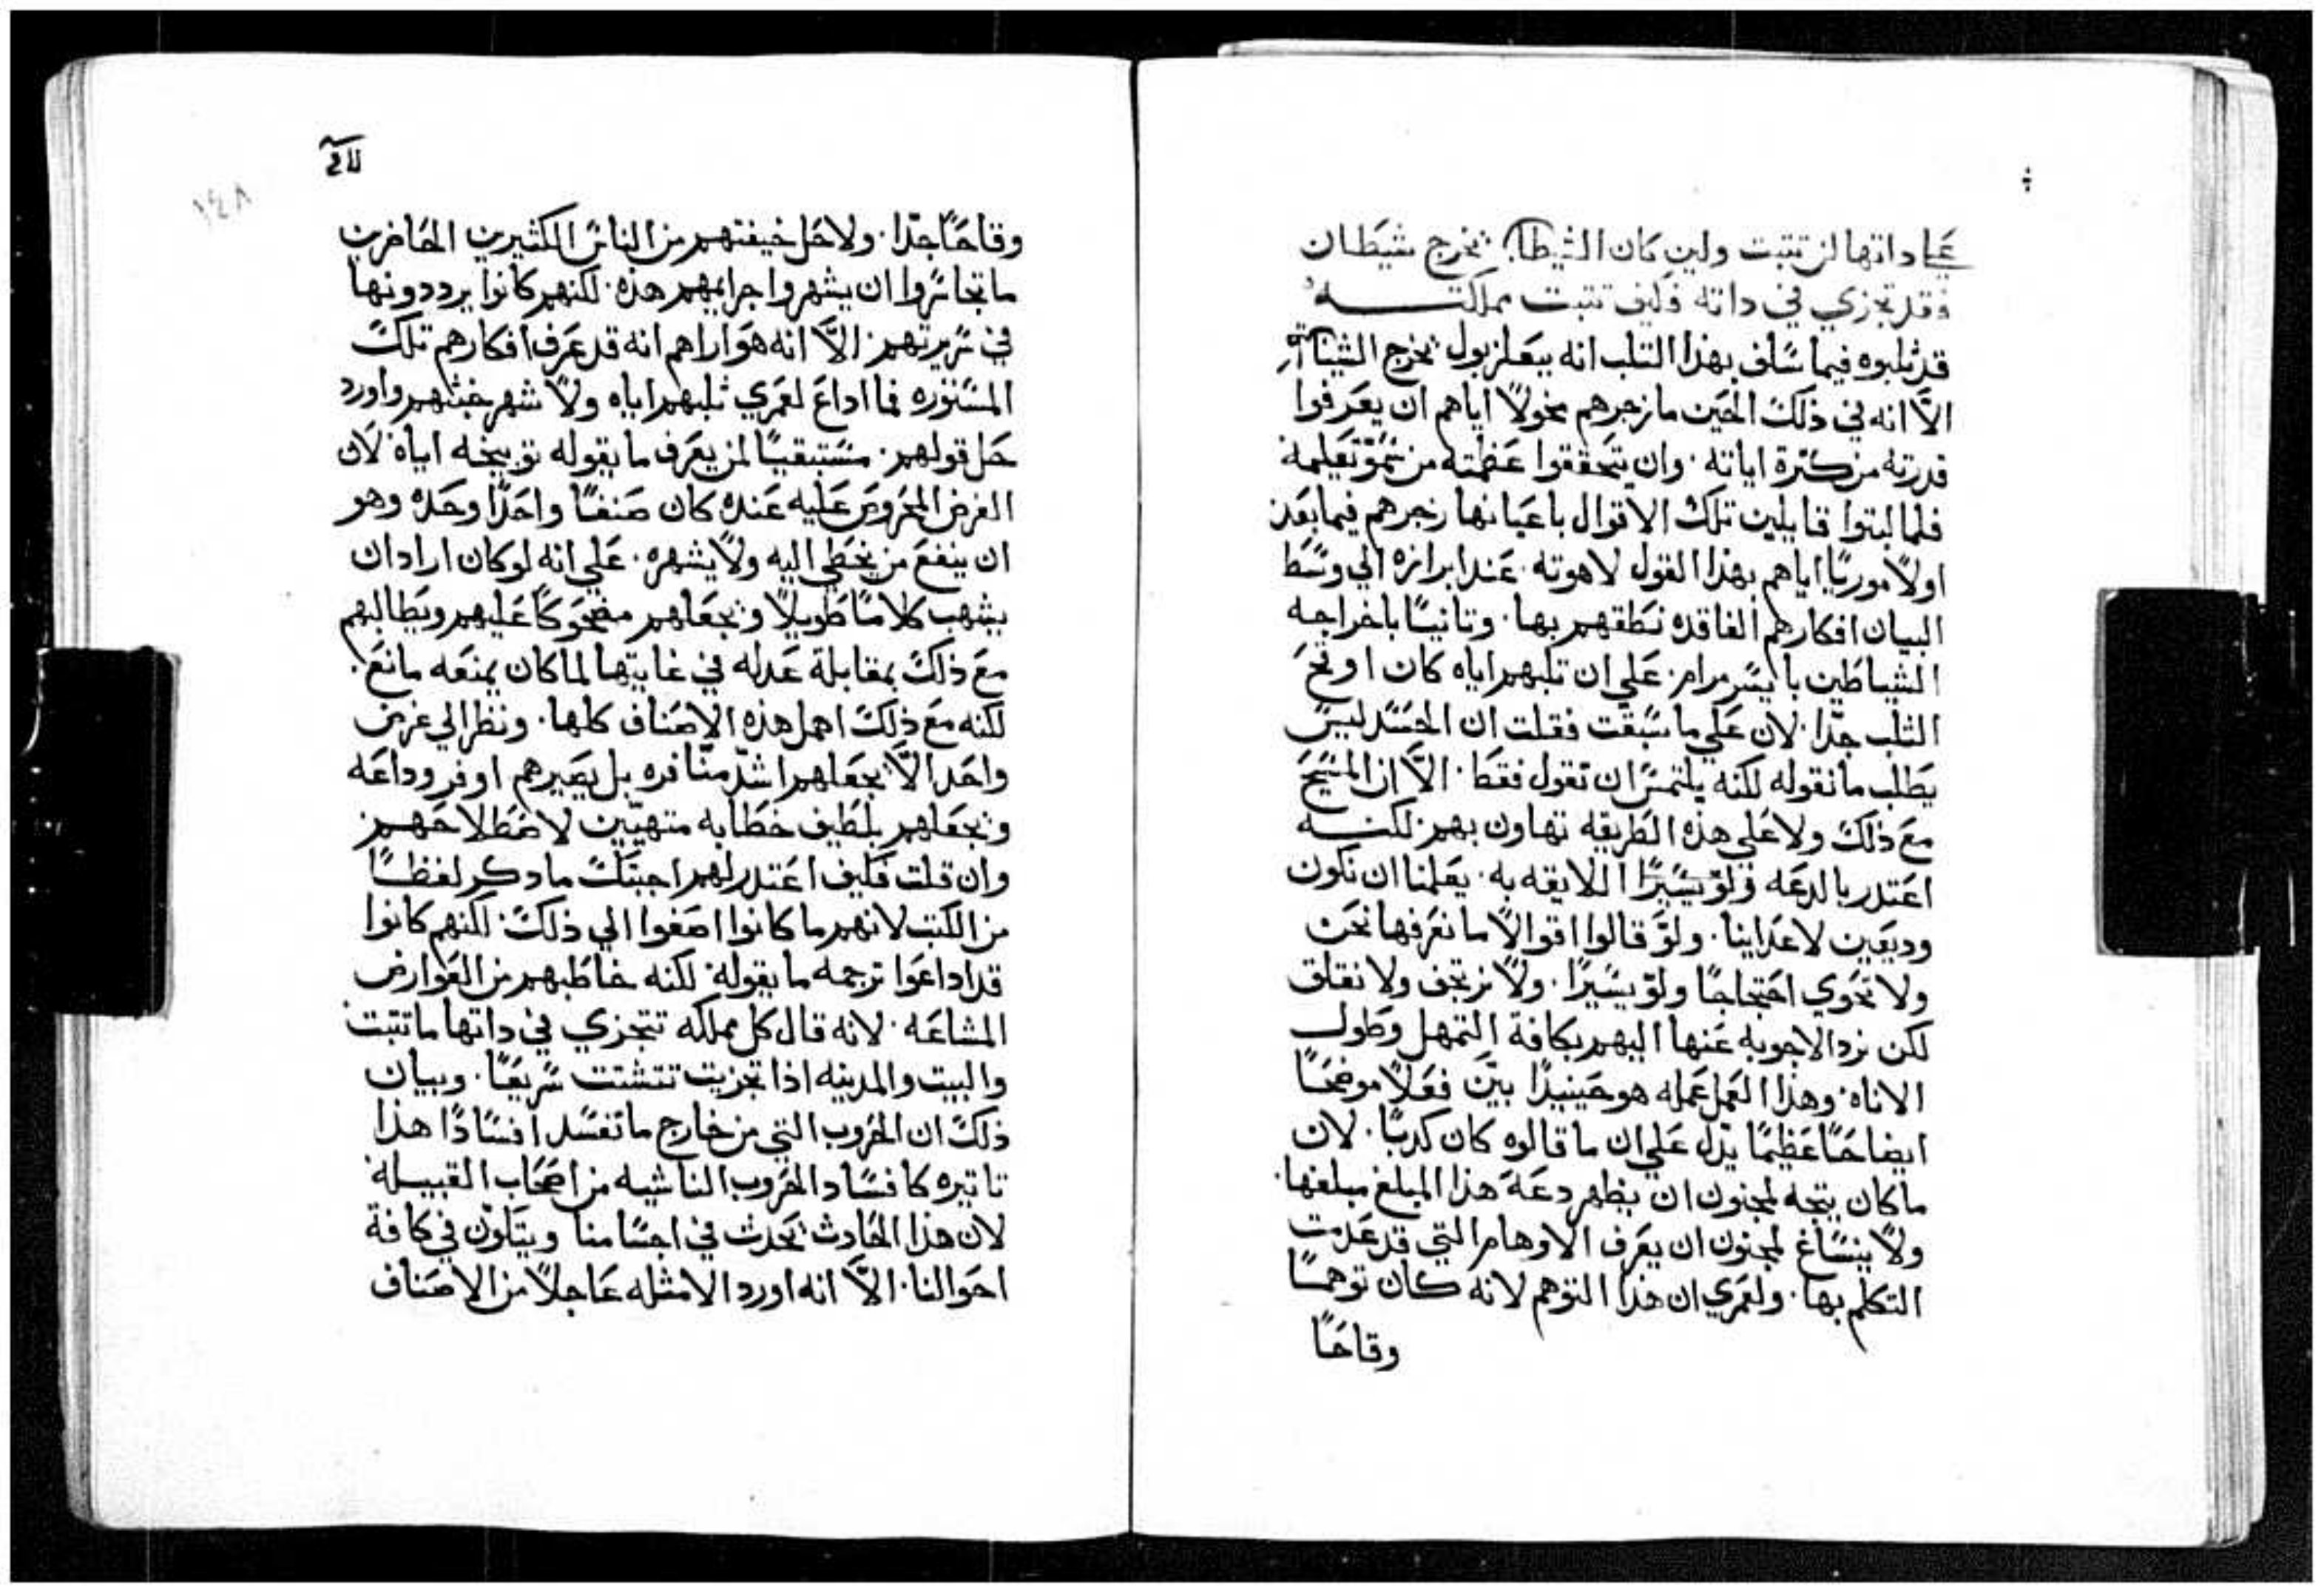 علي داتها لن تتبت ولين كان الشيطان يخرج شيطان
فقد تجزي في داته فكيف تتبت مملكته
قد ثلبوه فيما سلف بهذا التلب انه ببعلزبول يخرج الشياطين
الا انه في ذلك الحين ما زجرهم مخولاً اياهم ان يعرفوا
قدرته من كثرة اياته. وان يتحققوا عظمته من سمو تعليمه
فلما لبتوا قايلين تلك الاقوال باعيانها زجرهم فيما بعد
اولاً موريًا اياهم بهذا القول لاهوته. عند ابرازه الي وسط
البيان افكارهم الفاقده نطقهم بها. وتانيًا باخراجه
الشياطين بايسر مرام. علي ان تلبهم اياه كان اوقح
الثلب جدًا. لان علي ما سبقت فقلت ان الحسد ليس
يطلب ما نقوله لكنه يلتمس ان تقول فقط. الاّ ان المسيح
مع ذلك ولا علي هذه الطريقه تهاون بهم. لكنه
اعتدر بالدعه ولو يسيرًا اللايقه به. يعلمنا ان نكون
وديعين لاعداينا. ولو قالوا اقوالاً ما نعرفها نحن
ولا تحوي احتجاجًا ولو يسيرًا. ولا نرتجف ولا نقلق
لكن نرد الاجوبه عنها اليهم بكافة التمهل وطول
الاناه. وهذا العمل عمله هو حينيدًا بين فعلاً موضحًا
ايضاحًا عظيمًا يدل علي ان ما قالوه كان كدبًا. لان
ما كان يتجه لمجنون ان يظهر دعة هذا المبلغ مبلغها.
ولا ينساغ لمجنون ان يعرف الاوهام التي قد عدمت
التكلم بها. ولعمري ان هذا التوهم لانه كان توهمًا
وقاحًا
وقاحًا جدًا. ولاحل خيفتهم من الناس الكثيرين الحاضرين
ما تجاسروا ان يشهروا جرايمهم هذه. لكنهم كانوا يرددونها
في سريرتهم. الاّ انه هو اراهم انه قد عرف افكارهم تلك
المستوره فما اداع لعمري ثلبهم اياه ولا شهر خبثهم واورد
حل قولهم. مستبقيًا لمن يعرف ما يقوله توبيخه اياه لان
الغرض المحروص عليه عنده كان صنفًا واحدًا وحده وهو
ان ينفع من يخطي اليه ولا يشهره. علي انه لو كان اراد ان
يشهب كلامًا طويلاً ويجعلهم مضحوكًا عليهم ويطالبهم
مع ذلك بمقابلة عدله في غايتها لما كان يمنعه مانع.
لكنه مع ذلك اهمل هذه الاصناف كلها. ونظر الي غرض
واحد الاّ يجعلهم اشدّ منافره بل يصيرهم اوفر وداعه
ويجعلهم بلطيف خطابه متهيين لاصطلاحهم.
وان قلت فكيف اعتدر لهم اجبتك ما دكر لفظًا
من الكتب لانهم ما كانوا اصغوا الي ذلك. لكنهم كانوا
قد اداعوا ترجمه ما يقوله. لكنه خاطبهم من العوارض
المشاعه. لانه قال كل مملكه تتجزي في داتها ما تتبت
والبيت والمدينه اذا تجزيت تتشتت سريعًا. وبيان
ذلك ان الحروب التي من خارج ما تفسد افسادًا هذا
تاتيره كافساد الحروب الناشيه من اصحاب القبيله
لان هذا الحادث يحدث في اجسامنا ويتلون في كافة
احوالنا. الاّ انه اورد الامثله عاجلاً من الاصناف